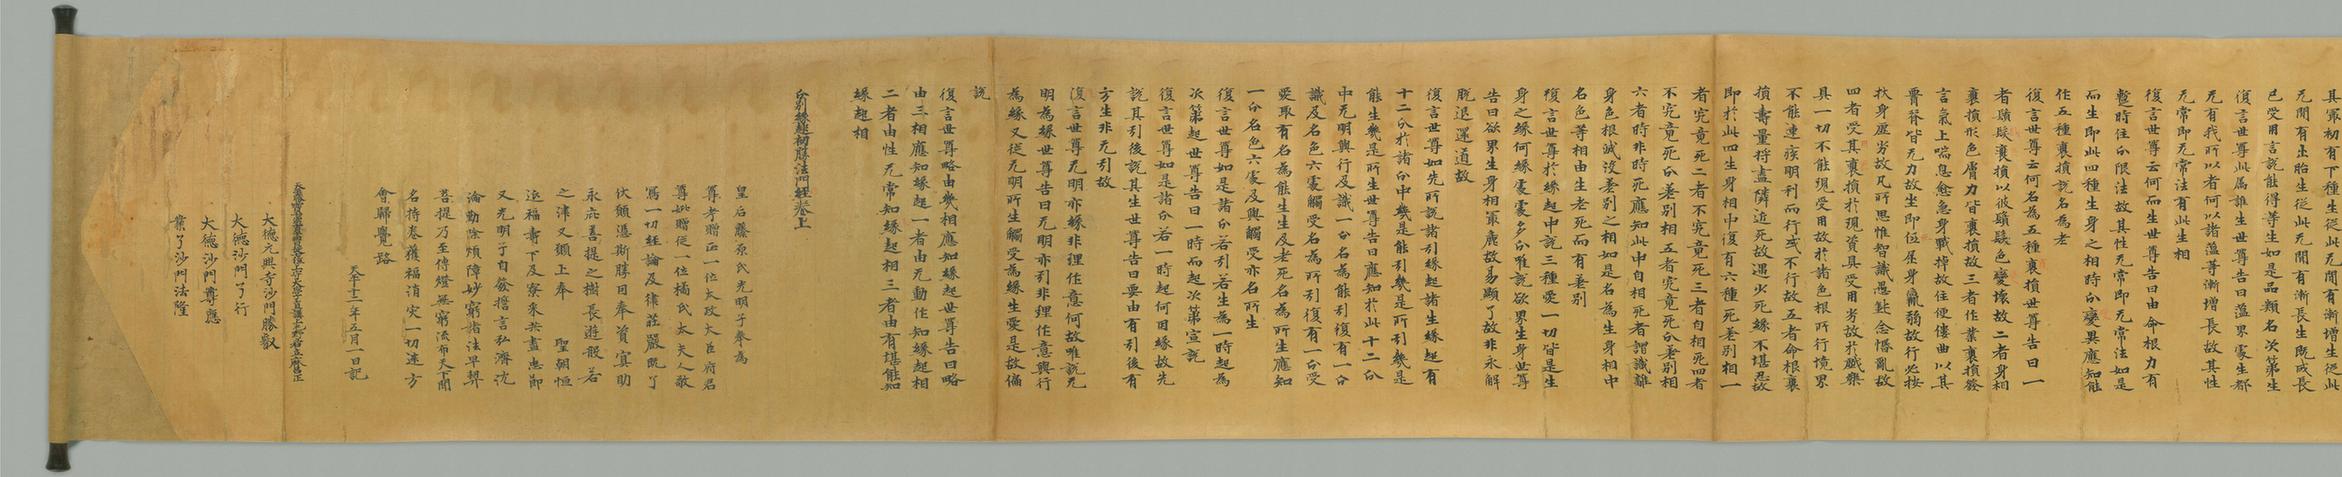 其軍初有下種生從此无間有漸增生從此
无間有出胎生從此无間有漸長生既成長
已受用言說能得等生如是品類名次第生
復言世尊此属誰生世尊告曰薀界處生都
无有我所以者何以諸薀等漸增長故其性
无常即无常法有此生相
復言世尊云何而生世尊告曰由命根力有
暫時住分限法故其性无常即无常法如是
而生即此四種生身之相時分變異應知能
作五種衰損說名為老
復言世尊云何名為五種衰損世尊告曰一
者鬚髮衰損以彼鬚髮色變壞故二者身相
衰損形色膚力皆衰損故三者作業衰損發
言氣上喘息愈急身戰掉故住便僂曲以其
腰脊皆无力故坐即低屈身羸弱故行必按
杖身虛劣故凡所思惟智識愚鈍念惛亂故
四者受用衰損於現資具受用劣故於戲樂
具一切不能現受用故於諸色根所行境界
不能速疾明利而行或不行故五者命根衰
損壽量將盡隣近死故遇少死緣不堪忍故
即於此四生身相中復有六種死差別相一
者究竟死二者不究竟死三者自相死四者
不究竟死分差別相五者究竟死分差別相
六者時非時死應知此中自相死者謂識離
身色根滅沒差別之相如是名為生身相中
名色等相由生老死而有差別
復言世尊於緣起中說三種愛一切皆是生
身之緣何緣處處多分唯說欲界生身世尊
告曰欲界生身相麁故易顯了故非永解
脫退還道故
復言世尊如先所說諸引緣起諸生緣起有
十二分於諸分中幾是能引幾是所引幾是
能生幾是所生世尊告曰應知於此十二分
中无明與行及識一分名為能引復有一分
識及名色六處觸受名為所引復有一分受
愛取有名為能生生及老死名為所生應知
一分名色六處及與觸受亦名所生
復言世尊如是諸分若引若生為一時起為
次第起世尊告曰一時而起次第宣說
復言世尊如是諸分若一時起何因緣故先
說其引後說其生世尊告曰要由有引後有
方生非无引故
復言世尊无明亦緣非理作意何故唯說无
明為緣世尊告曰无明亦引非理作意與行
為緣又從无明所生觸受為緣生愛是故偏
說
復言世尊略由幾相應知緣起世尊告曰略
由三相應知緣起一者由无動作知緣起相
二者由性无常知緣起相三者由有堪能知
緣起相
分別緣起初勝法門經卷上
皇后藤原氏光明子奉為
尊考贈正一位太政太臣府君
尊妣贈從一位橘氏太夫人敬
寫一切經論及律莊嚴既了
伏願憑斯勝因奉資冥助
永庇菩提之樹長遊般若
之津又願上奉 聖朝恒
延福壽下及寮采共盡忠節
又光明子自發誓言弘濟沈
淪勤除煩障妙窮諸法早契
菩提乃至傳燈無窮流布天下聞
名持卷獲福消灾一切迷方
會歸覺路
天平十二年五月一日記
大德元興寺沙門勝叡
大德沙門了行
大德沙門尊應
業了沙門法隆